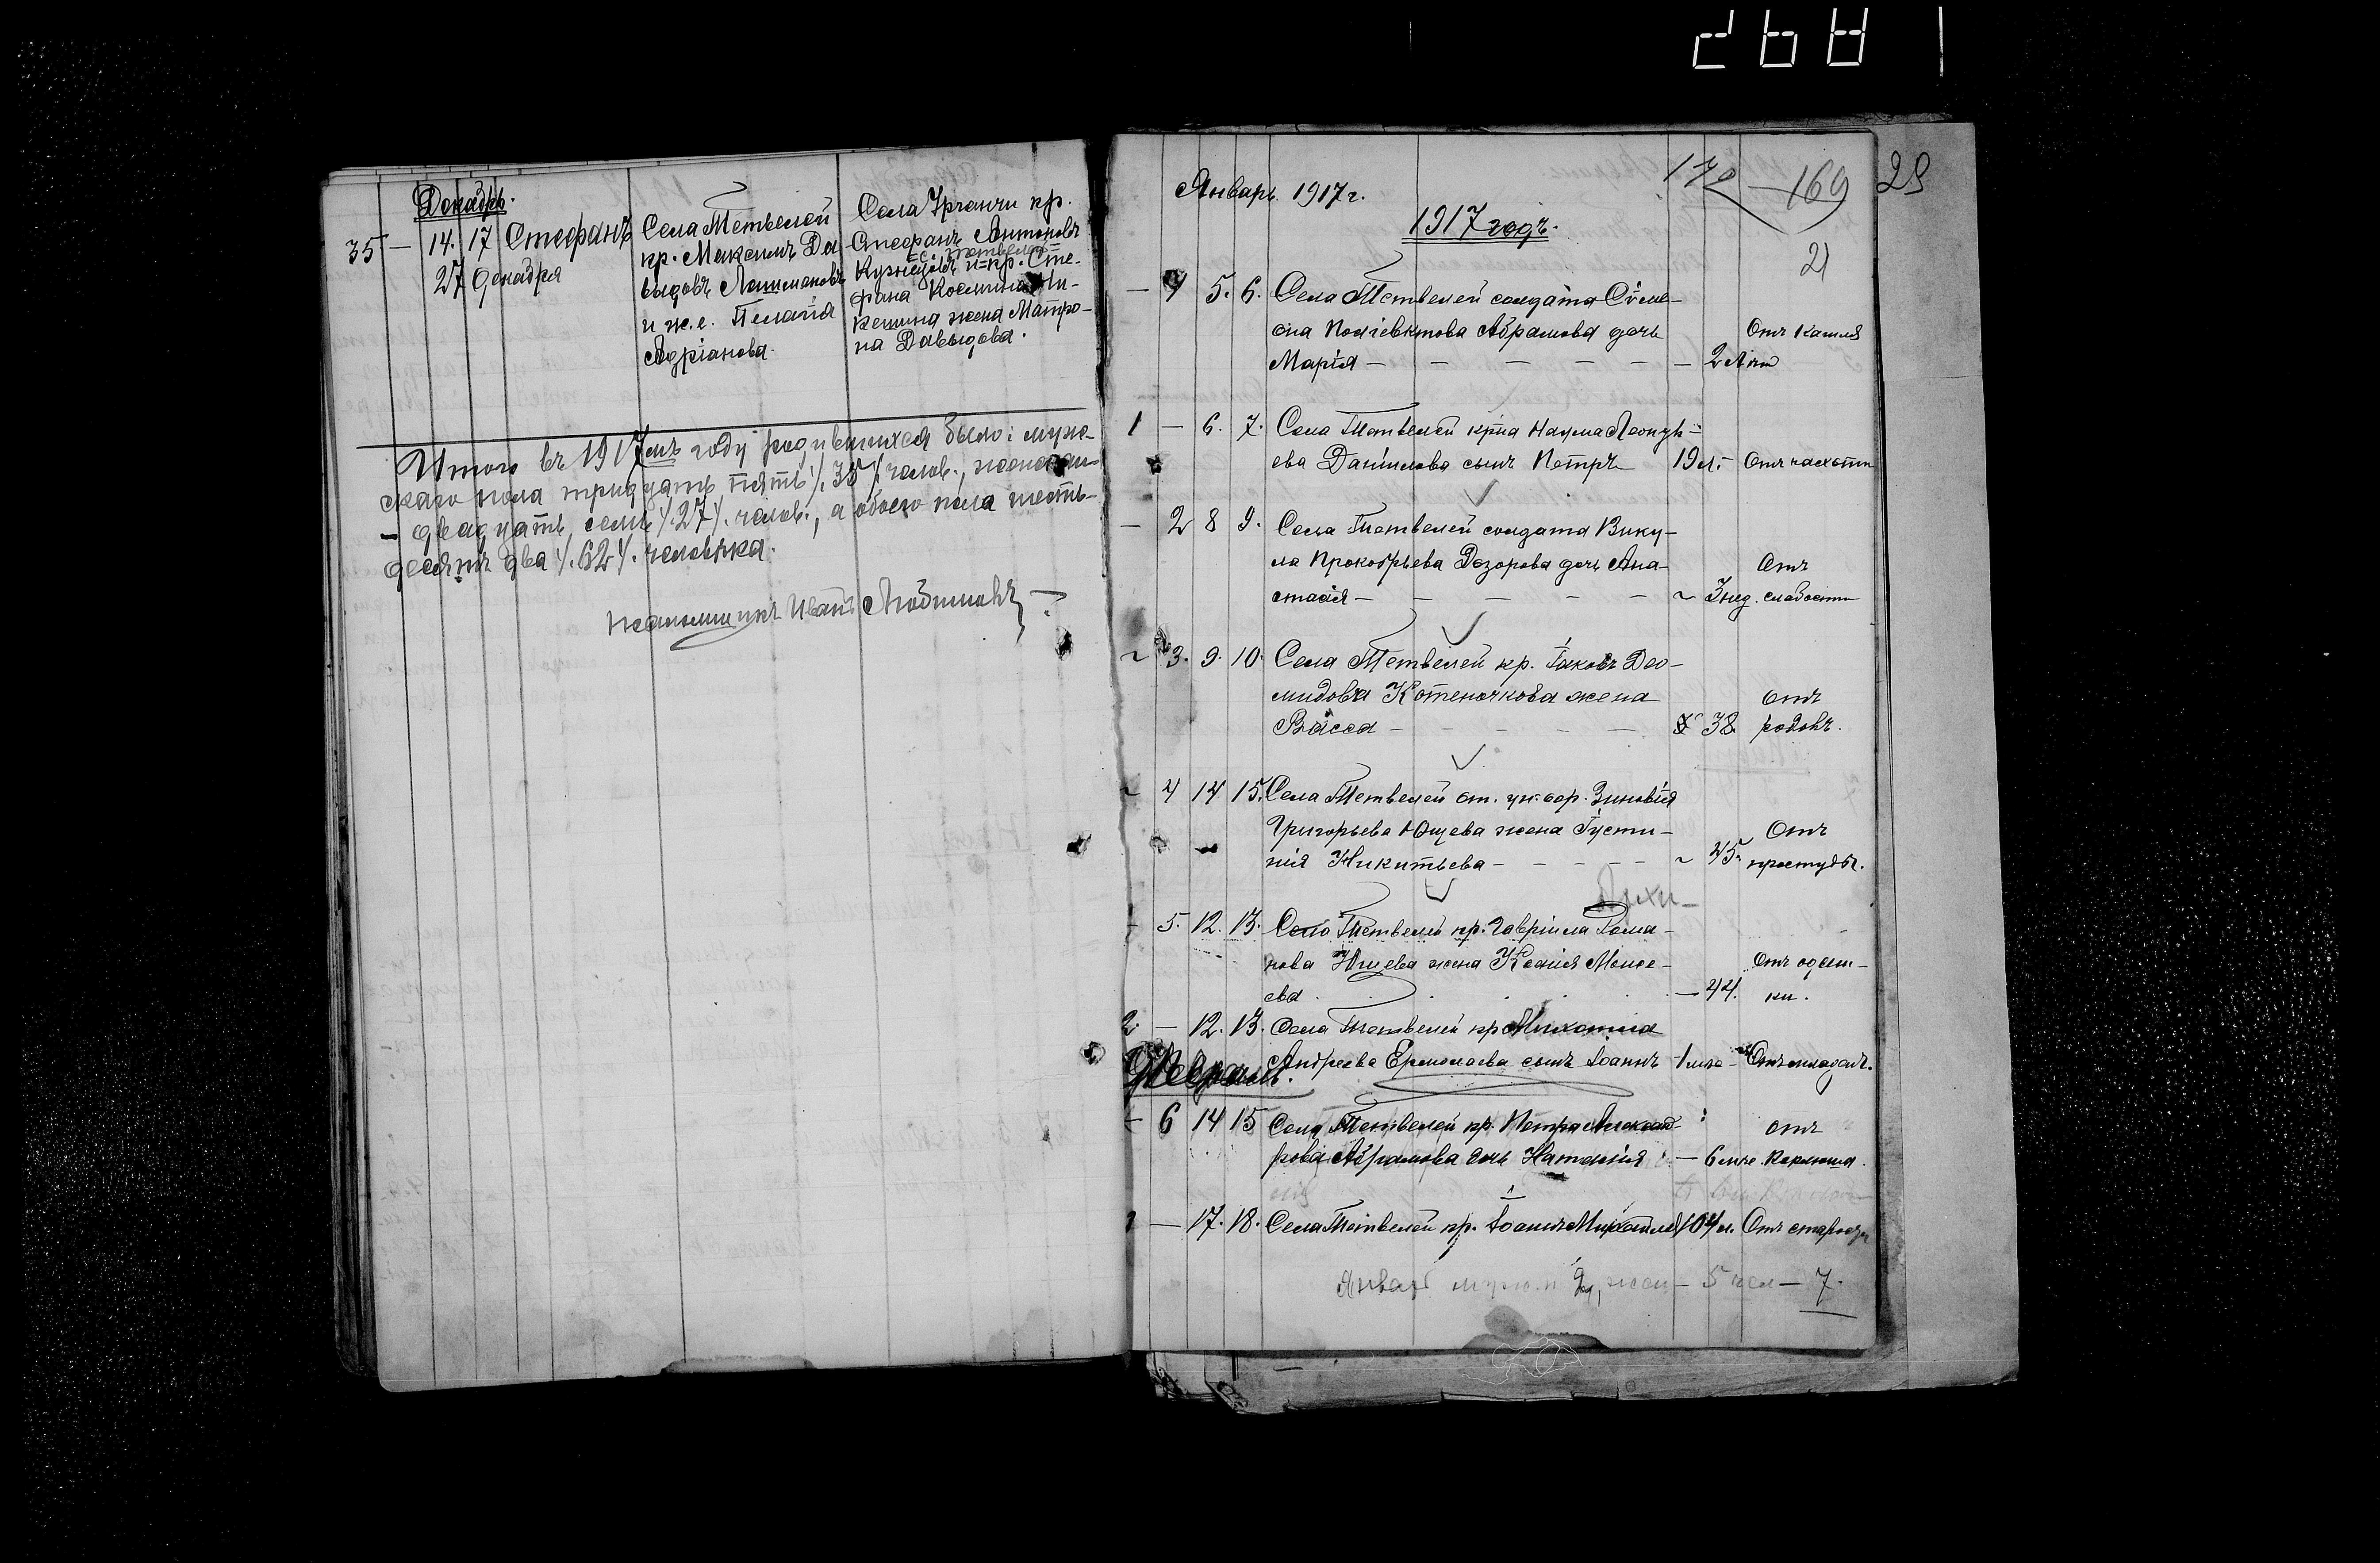 Декабрь.
35 — 14. 17 Стефанъ
27 декабря
Села Тетвелей
кр. Максимъ Да-
выдовъ Лашмановъ
и ж. е. Пелагія
Адріанова.
Села Урганчи кр.
Стефанъ Анторовъ
с. Тетвелей
Кузнецовъ и кр. Сте-
фана Космина Ни-
кешина жена Матро-
на Давыдова.
Итого въ 1917мъ году родившихся было: муж-
скаго пола тридцать пять /.35/. челов., женскаго
— двадцать семь /.27/. челов., а обоего пола шесть-
десятъ два /.62/. человѣка.
псаломщикъ Иванъ Любимовъ
Январь 1917 г.
170 — 169 29
1917 годъ.
21
5. 6. Села Тетвелей солдата Сѵме-
она Поліевктова Абрамова дочь
Отъ кашля
Марія — — — — — — 2 лѣтъ
1 — 6. 7. Села Тетвелей кр-на Наума Леонть-
ева Данилова сынъ Петръ 19 л. — Отъ чахотки
— 2 8 9. Села Тетвелей солдата Вику-
ла Прокофьева Дозорова дочь Ана-
Отъ
стасія — — — — — 3 нед. слабости
3. 9. 10. Села Тетвелей кр. Іаковъ Део-
мидова Котеночкова жена
Отъ
Васса — — — — — 38 родовъ.
4 14 15. Села Тетвелей ст. ун. офр. Зиновія
Григорьева Ющева жена Іусти-
Отъ
нія Никитьева — — — — — 45 простуды.
Лихи-
— 5. 12. 13. Село Тетвелей кр. Гавріила Рома-
нова жена Ксенія Моисе-
Отъ одыш-
ева . . . . . — 44. ки.
2. — 12. 13. Села Тетвелей кр. Михаила
Андреева Ермолаева сынъ Іоаннъ — 1 мца — Отъ младен.
Февраль.
— 6 14 15 Села Тетвелей кр. Петра Александ-
Отъ
рова Абрамова дочь Наталія — 6 мце. Коклюша.
1 — 17. 18. Села Тетвелей кр. Іоаннъ Михайлов 104 л. Отъ старости
Январь муж. п 2, жен — 5 чел — 7.